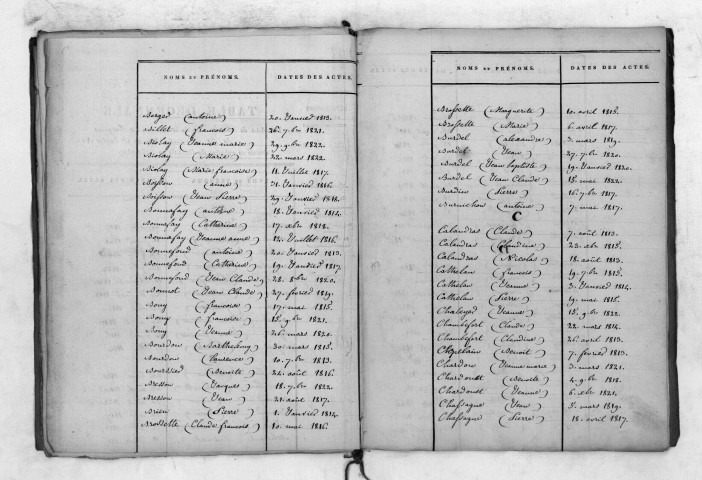 NOMS ET PRÉNOMS. DATES DES ACTES.
Berger (antoine) 20. Janvier 1813.
Billet (francois) 26. 7.bre 1821.
Biolay (Jeanne marie) 29. 9.bre 1822.
Biolay (Marie) 22. mars 1822.
Biolay (Marie francoise) 11. Juillet 1817.
Boisson (annie) 31. Janvier 1816.
Boisson (Jean Pierre) 29. Janvier 1814.
Bonnefay (antoine) 18. Janvier 1814.
Bonnefay (Catherine) 17. xbre 1818.
Bonnefay (Jeanne anne) 12. Juillet 1816.
Bonnefond (antoine) 20. Janvier 1813.
Bonnefond (Catherine) 19. Janvier 1817.
Bonnefond (Jean Claude) 28. 8bre 1820.
Bonnot (Jean Claude) 27. février 1819.
Bony (francoise) 17. mai 1815.
Bony (francoise) 15. 9.bre 1821.
Bony (Jeanne) 26. mars 1820.
Bourdon (Barthelemy) 30. mars 1815.
Bourdon (Laurence) 10. 7.bre 1813.
Boursier (Benoite) 24. août 1816.
Bresson (Jacques) 18. 7.bre 1822.
Bresson (Jean) 21. août 1817.
Brieu (Pierre) 1. Janvier 1814.
Brossette (Claude francois) 10. mai 1816.
NOMS ET PRÉNOMS. DATES DES ACTES.
Brossette (Marguerite) 10. avril 1815.
Brossette (Marie) 6. avril 1817.
Burdel (alexandre) 3. mars 1819.
Burdel (Jean) 27. 7.bre 1820.
Burdel (Jean baptiste) 19. Janvier 1820.
Burdel (Jean Claude) 15. mai 1822.
Burdin (Pierre) 16. 7.bre 1817.
Burnichon (antoine) 7. mai 1817.
C
Calandras (Claude) 7. août 1813.
Calandras (Claudine) 23. xbre 1815.
Calandras (Nicolas) 18. août 1813.
Cathelan (francois) 19. 7.bre 1815.
Cathelan (Jeanne) 3. Janvier 1814.
Cathelan (Pierre) 19. mai 1815.
Chalayer (Jeanne) 15. 9.bre 1822.
Chambefort (Claude) 22. mars 1814.
Chambefort (Claudine) 26. avril 1813.
Chapelain (Benoit) 7. février 1813.
Chardon (Jeanne marie) 3. mars 1821.
Chardouet (Benoite) 4. 9.bre 1818.
Chardouet (Jeanne) 6. xbre 1821.
Chassagne (Jean) 5. mars 1819.
Chassagne (Pierre) 18. avril 1817.